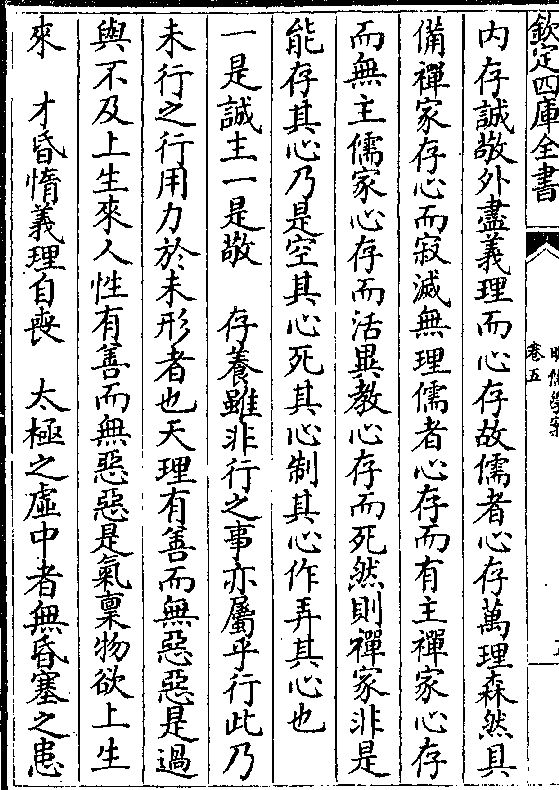 欽定四庫全書
卷五
内存誠敬外盡義理而心存故儒者心存萬理森然具
備禪家存心而寂滅無理儒者心存而有主禪家心存
而無主儒家心存而活異教心存而死然則禪家非是
能存其心乃是空其心死其心制其心作弄其心也
一是誠主一是敬　存養雖非行之事亦屬乎行此乃
未行之行用力於未形者也天理有善而無惡惡是過
與不及上生來人性有善而無惡惡是氣禀物欲上生
來　才昏惰義理自喪　太極之虚中者無昏塞之患